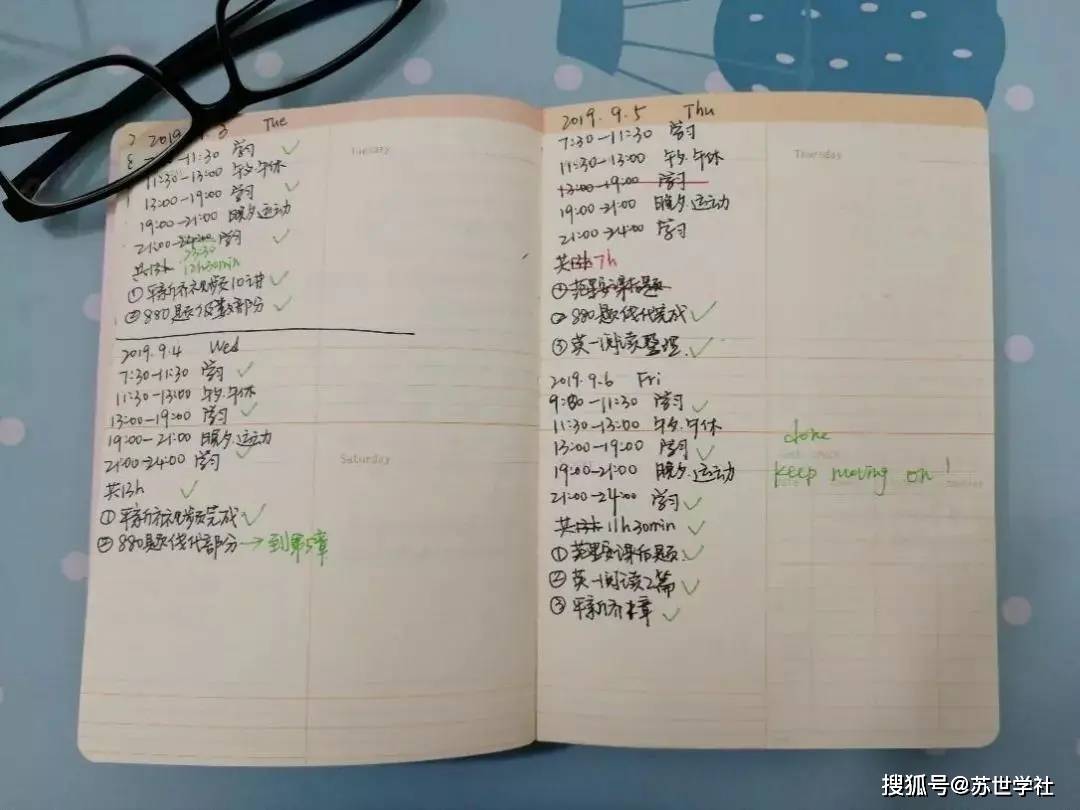 2019. 3 Tue
7:30-11:30 学习 ✓
11:30-13:00 午夕.午休
13:00-19:00 学习 ✓
19:00-21:00 晚夕.运动
21:00-24:00 学习 ✓
23:30
共13h 12h30min
① 平新乔视频10讲 ✓
② 880题 部分 ✓
Tuesday
2019.9.4 Wed
7:30-11:30 学习 ✓
11:30-13:00 午夕.午休
13:00-19:00 学习 ✓
19:00-21:00 晚夕.运动
21:00-24:00 学习 ✓
共13h ✓
① 平新乔视频完成 ✓
② 880题线代部分 → 到第5章
Saturday
2019.9.5 Thu
7:30-11:30 学习
11:30-13:00 午夕.午休
13:00-19:00 学习
19:00-21:00 晚夕.运动
21:00-24:00 学习
共13h 7h
① 范里安课后题
② 880题线代完成 ✓
③ 英一阅读整理 ✓
Thursday
2019.9.6 Fri
9:30-11:30 学习 ✓
11:30-13:00 午夕.午休
13:00-19:00 学习 ✓
19:00-21:00 晚夕.运动
21:00-24:00 学习 ✓
共13h 11h30min ✓
① 范里安课后题 ✓
② 英一阅读2篇 ✓
③ 平新乔 章 ✓
done
keep moving on!
搜狐号@苏世学社